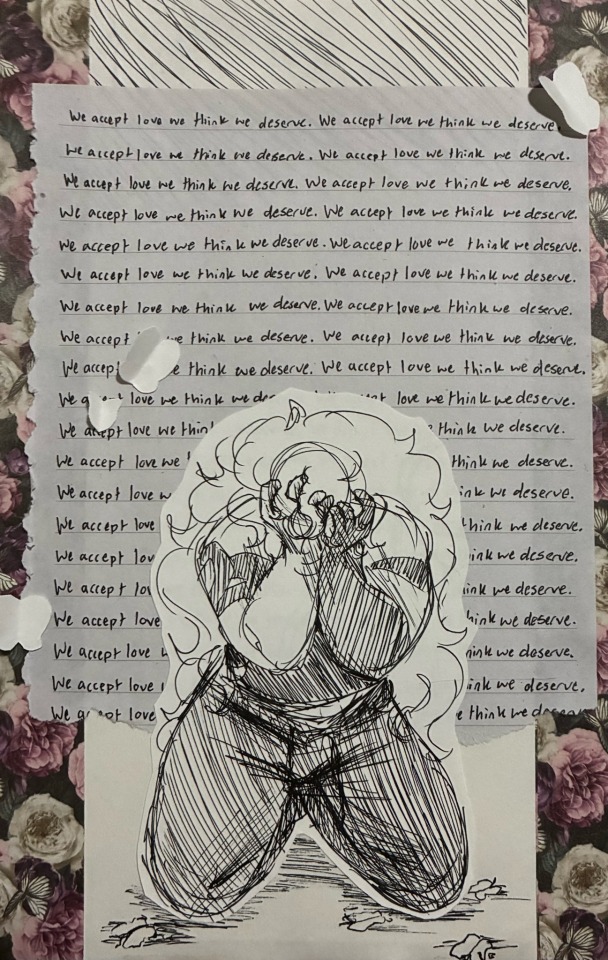 We accept love we think we deserve. We accept love we think we deserve
We accept love we think we deserve. We accept love we think we deserve.
We accept love we think we deserve. We accept love we think we deserve.
We accept love we think we deserve. We accept love we think we deserve.
We accept love we think we deserve. We accept love we think we deserve.
We accept love we think we deserve. We accept love we think we deserve.
We accept love we think we deserve. We accept love we think we deserve.
We accept we think we deserve. We accept love we think we deserve.
We accept we think we deserve. We accept love we think we deserve.
We accept love we think we love we think we deserve.
We accept love we think we think we deserve.
We accept love we think we deserve.
We accept love we think we deserve.
We accept love think we deserve.
We accept think we deserve.
We accept think we deserve.
We accept think we deserve.
We accept love think we deserve.
We accept think we deserve.
We accept love we think we deserve